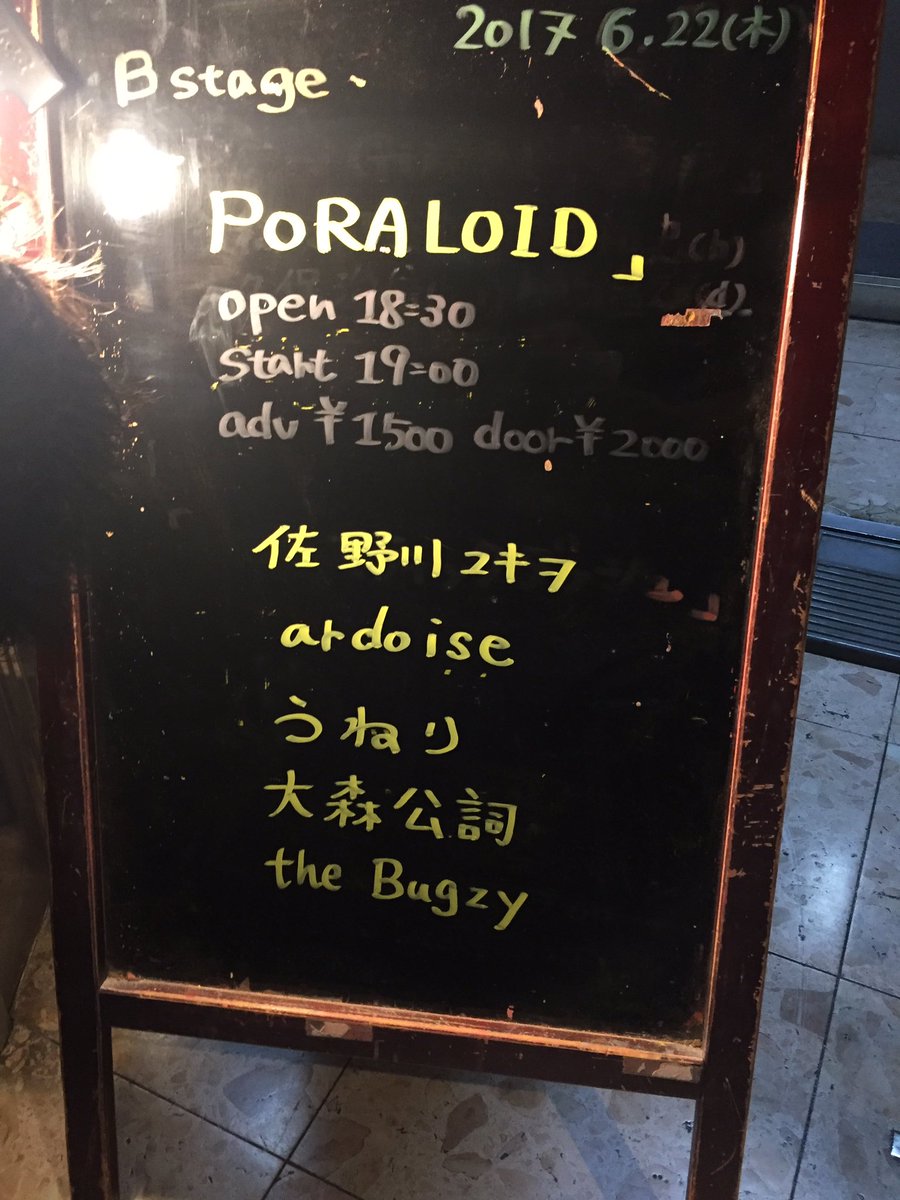 2017 6.22(木)
B stage
PORALOID」
open 18:30
start 19:00
adv ¥1500 door ¥2000
佐野川ユキヲ
ardoise
うねり
大森公詞
the Bugzy